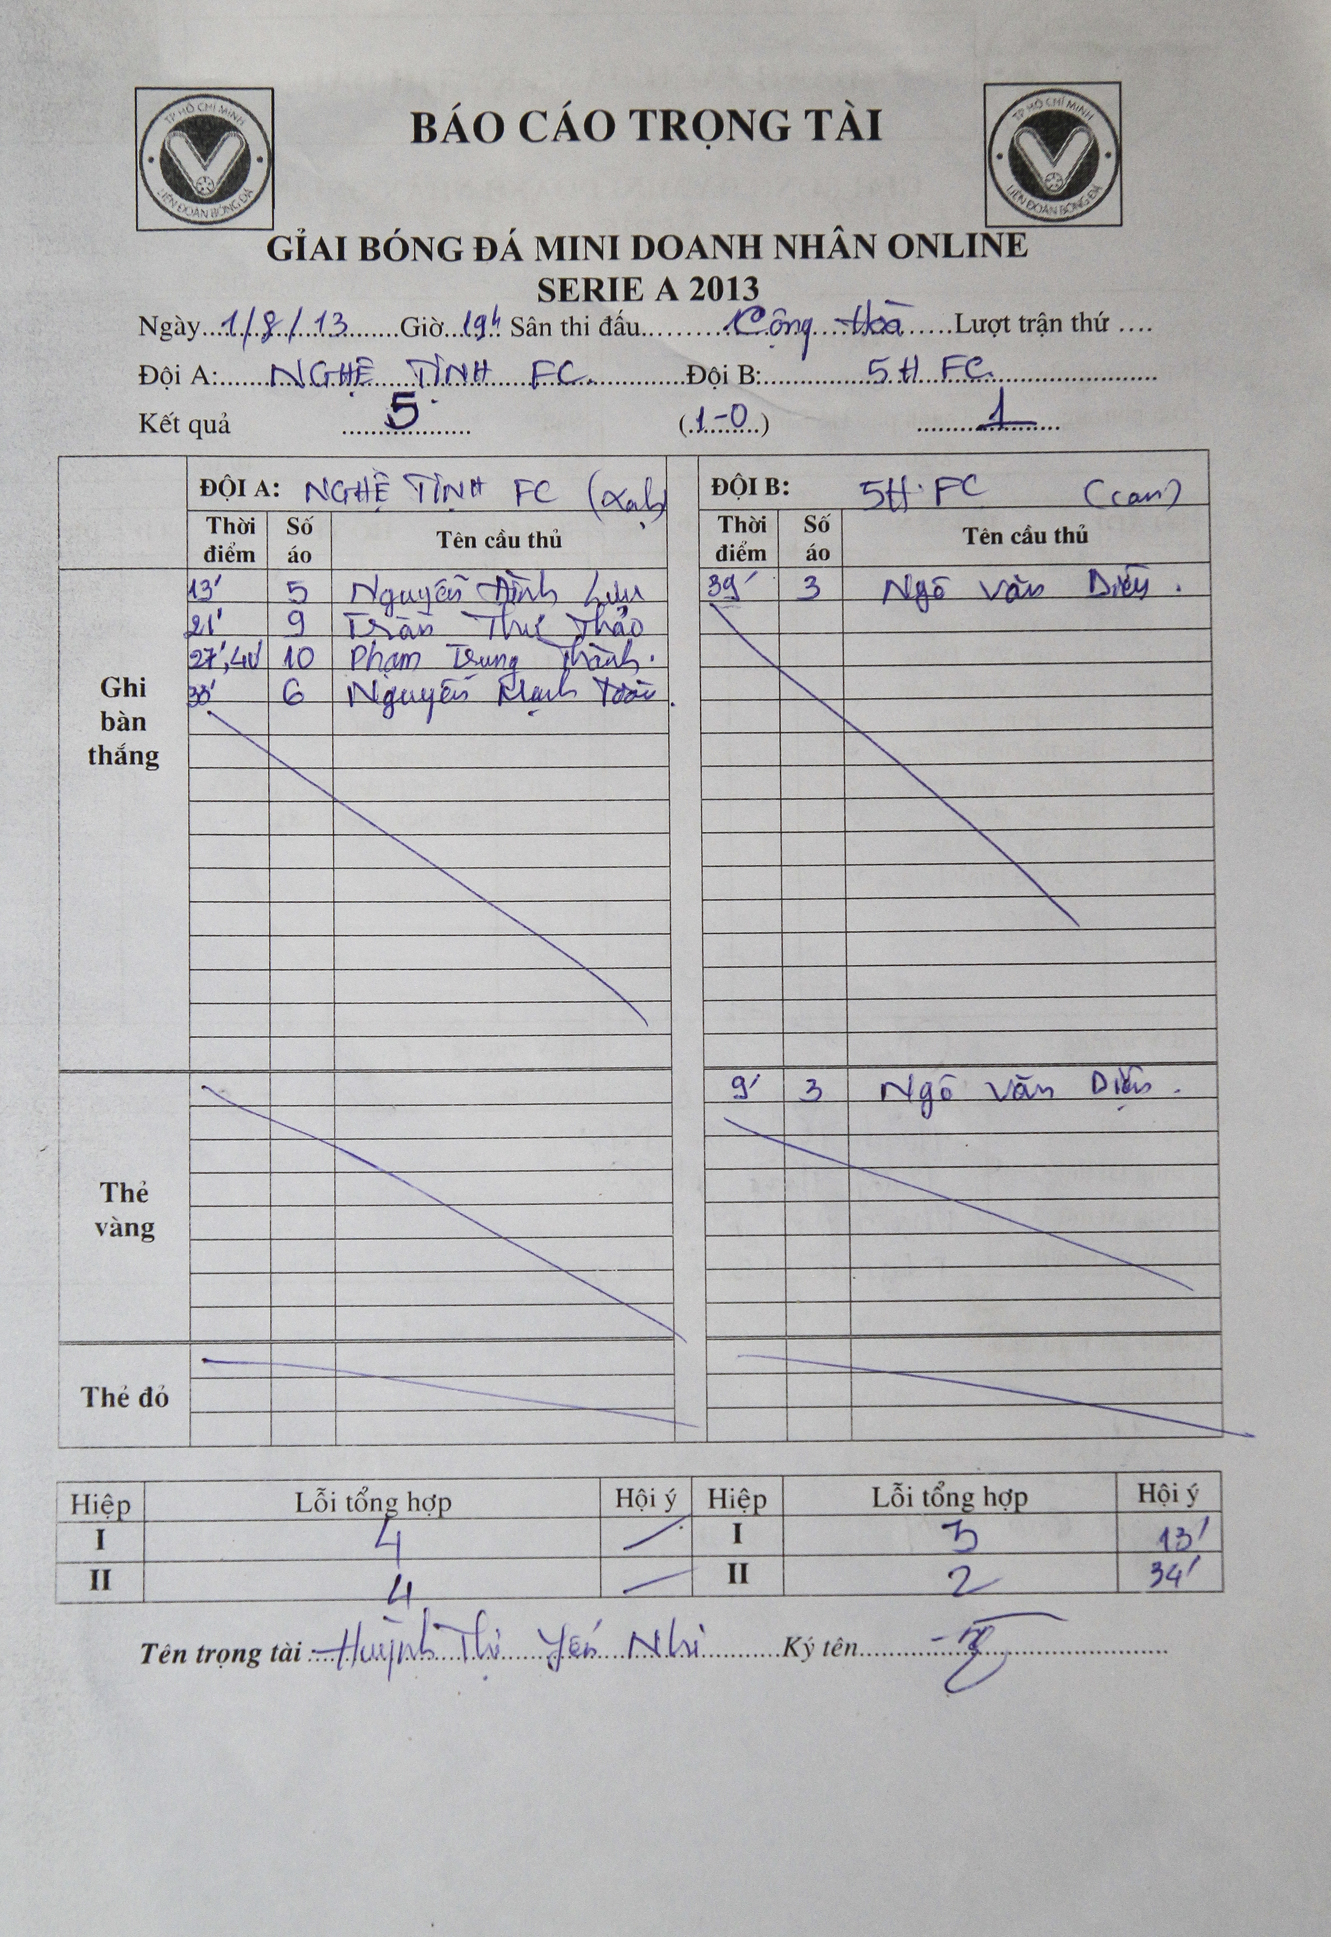 TP HỒ CHÍ MINH
LIÊN ĐOÀN BÓNG ĐÁ
BÁO CÁO TRỌNG TÀI
TP HỒ CHÍ MINH
LIÊN ĐOÀN BÓNG ĐÁ
GỈAI BÓNG ĐÁ MINI DOANH NHÂN ONLINE
SERIE A 2013
Ngày...1/8/13.......Giờ...19h Sân thi đấu.........Cộng Hòa......Lượt trận thứ ....
Đội A:......NGHỆ TĨNH FC.............Đội B:..............5H FC.......................
Kết quả 5 (1-0) 1
ĐỘI A: NGHỆ TĨNH FC (Xanh) ĐỘI B: 5H FC (cam)
Thời điểm Số áo Tên cầu thủ Thời điểm Số áo Tên cầu thủ
Ghi bàn thắng
13' 5 Nguyễn Đình Lưu 39' 3 Ngô Văn Diễn.
21' 9 Trần Thư Thảo
27', 40' 10 Phạm Trung Thành.
33' 6 Nguyễn Mạnh Toàn.
Thẻ vàng
9' 3 Ngô Văn Diễn.
Thẻ đỏ
Hiệp Lỗi tổng hợp Hội ý Hiệp Lỗi tổng hợp Hội ý
I 4 I 3 13'
II 4 II 2 34'
Tên trọng tài ....Huỳnh Thị Yến Nhi..........Ký tên..............................